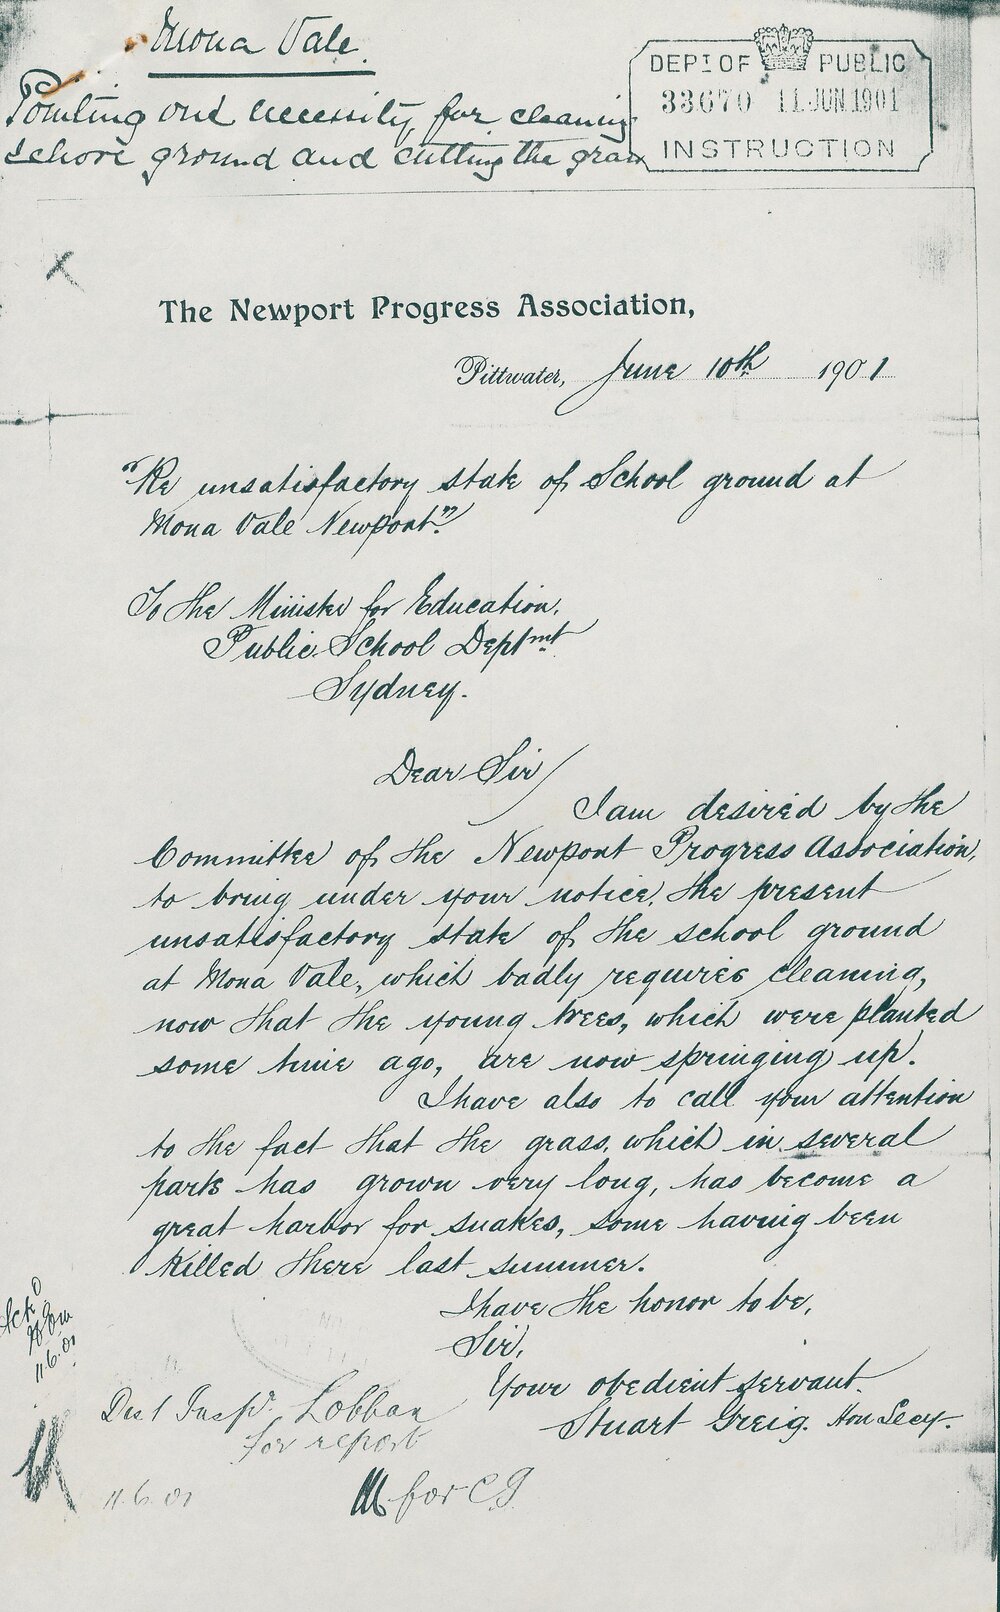 Mona Vale.
Pointing out necessity, for cleaning
school ground and cutting the grass
DEPT OF PUBLIC
33670 11.JUN.1901
INSTRUCTION
X
The Newport Progress Association,
Pittwater, June 10th 1901
"Re unsatisfactory state of School ground at
Mona Vale Newport."
To the Minister for Education.
Public School Deptmt
Sydney.
Dear Sir
I am desired by the
Committee of the Newport Progress Association,
to bring under your notice, the present
unsatisfactory state of the school ground
at Mona Vale, which badly requires cleaning,
now that the young trees, which were planted
some time ago, are now springing up.
I have also to call your attention
to the fact that the grass, which in several
parts has grown very long, has become a
great harbor for snakes, some having been
killed there last summer.
I have the honor to be,
Sir,
Your obedient servant.
Stuart Greig. Hon Secy.
Ackd
11.6.01
Dist Inspr. Lobban
for report
11.6.01
for CI